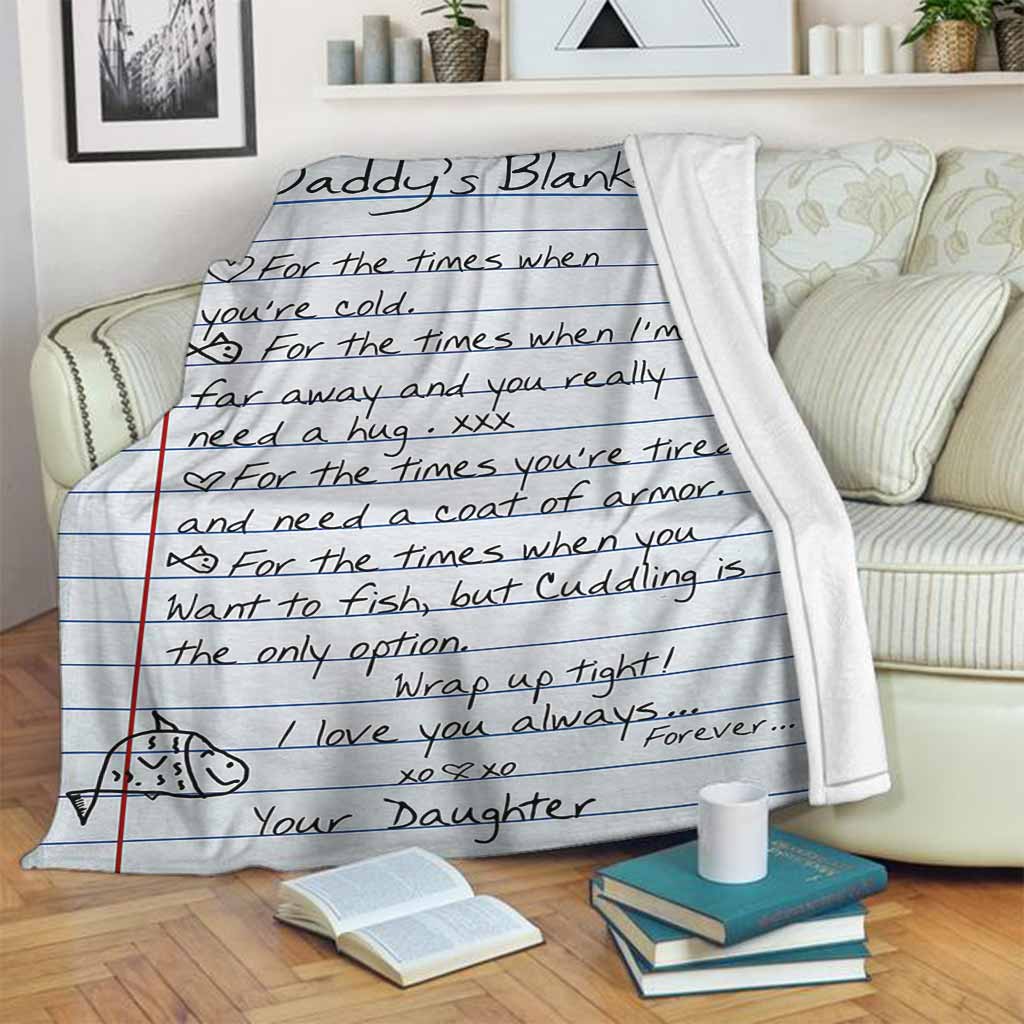 Daddy's Blank
For the times when
you're cold.
For the times when I'm
far away and you really
need a hug. xxx
For the times you're tired
and need a coat of armor.
For the times when you
Want to fish, but Cuddling is
the only option.
Wrap up tight!
I love you always...
Forever...
xo xo
Your Daughter